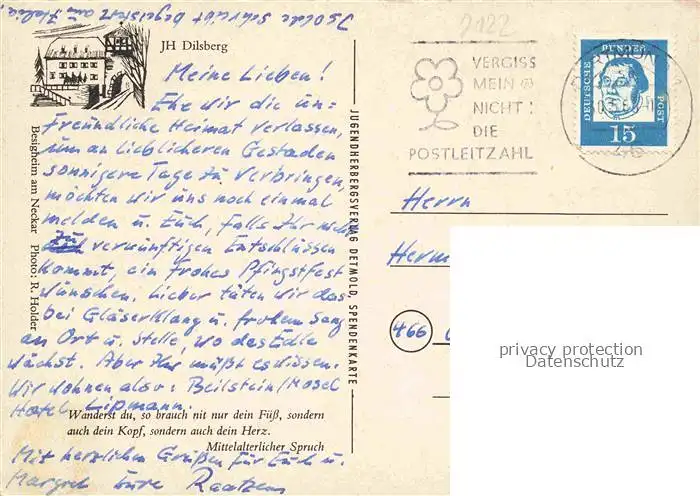 Isolde schreibt begeistert aus Italien
JH Dilsberg
Meine Lieben!
Ehe wir die un=
freundliche Heimat verlassen,
um an lieblicheren Gestaden
sonnigere Tage zu verbringen,
möchten wir uns noch einmal
melden u. Euch, falls Ihr nicht
zu vernünftigen Entschlüssen
kommt, ein frohes Pfingstfest
wünschen. Lieber täten wir das
bei Gläserklang u. frohem Sang
an Ort u. Stelle, wo das Edle
wächst. Aber Ihr müßt es wissen.
Wir wohnen also: Beilstein/Mosel
Hotel Lipmann.
Wanderst du, so brauch nit nur dein Füß, sondern
auch dein Kopf, sondern auch dein Herz.
Mittelalterlicher Spruch
Mit herzlichen Grüßen für Euch u.
Margret Eure
Besigheim am Neckar Photo: R. Holder
JUGENDHERBERGSVERLAG DETMOLD, SPENDENKARTE
2122
VERGISS
MEIN
NICHT:
DIE
POSTLEITZAHL
DEUTSCHE
BUNDES
POST
15
Herrn
Herm
466
privacy protection
Datenschutz